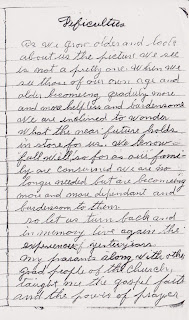 Deficulties
As we grow older and look
about us the picture we see
is not a pretty one. When we
see those of our own age and
older becoming gradually more
and more helpless and burdensome
we are inclined to wonder
what the near future holds
in store for us. We know
full well so far as our fami-
ly are concerned we are no
longer needed but are becoming
more and more dependant and
burdensom to them
so let us turn back and
in memory live again the
experiences of yesteryears.
My parants along with othe
good people of the Church,
taught me the gospel faith
and the power of prayer